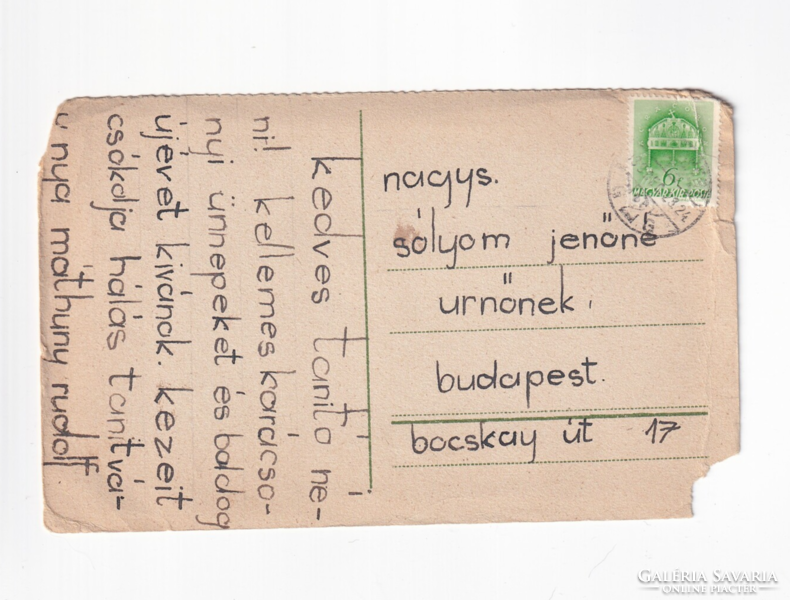 kedves tanító né-
ni! kellemes karácso-
nyi ünnepeket és boldog
újévet kívánok. kezeit
csókolja hálás tanítvá-
nya máthuny rudolf
nagys.
sólyom jenőné
úrnőnek,
budapest.
bocskay út 17
6
MAGYAR KIR. POSTA
GALÉRIA SAVARIA
ONLINE PIACTÉR